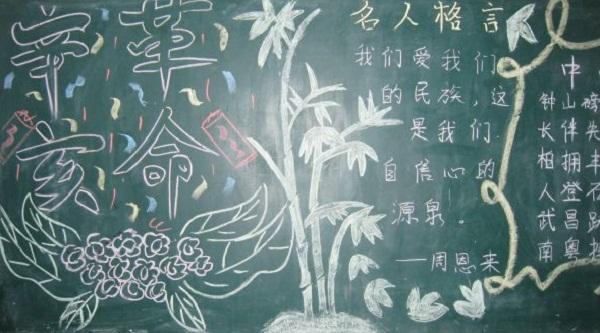 辛亥
革命
名人格言
我们爱我们
的民族，这
是我们
自信心的
源泉！
——周恩来
中
钟山磅
长伴先
柏拥丰
人登石
武昌跃
南粤